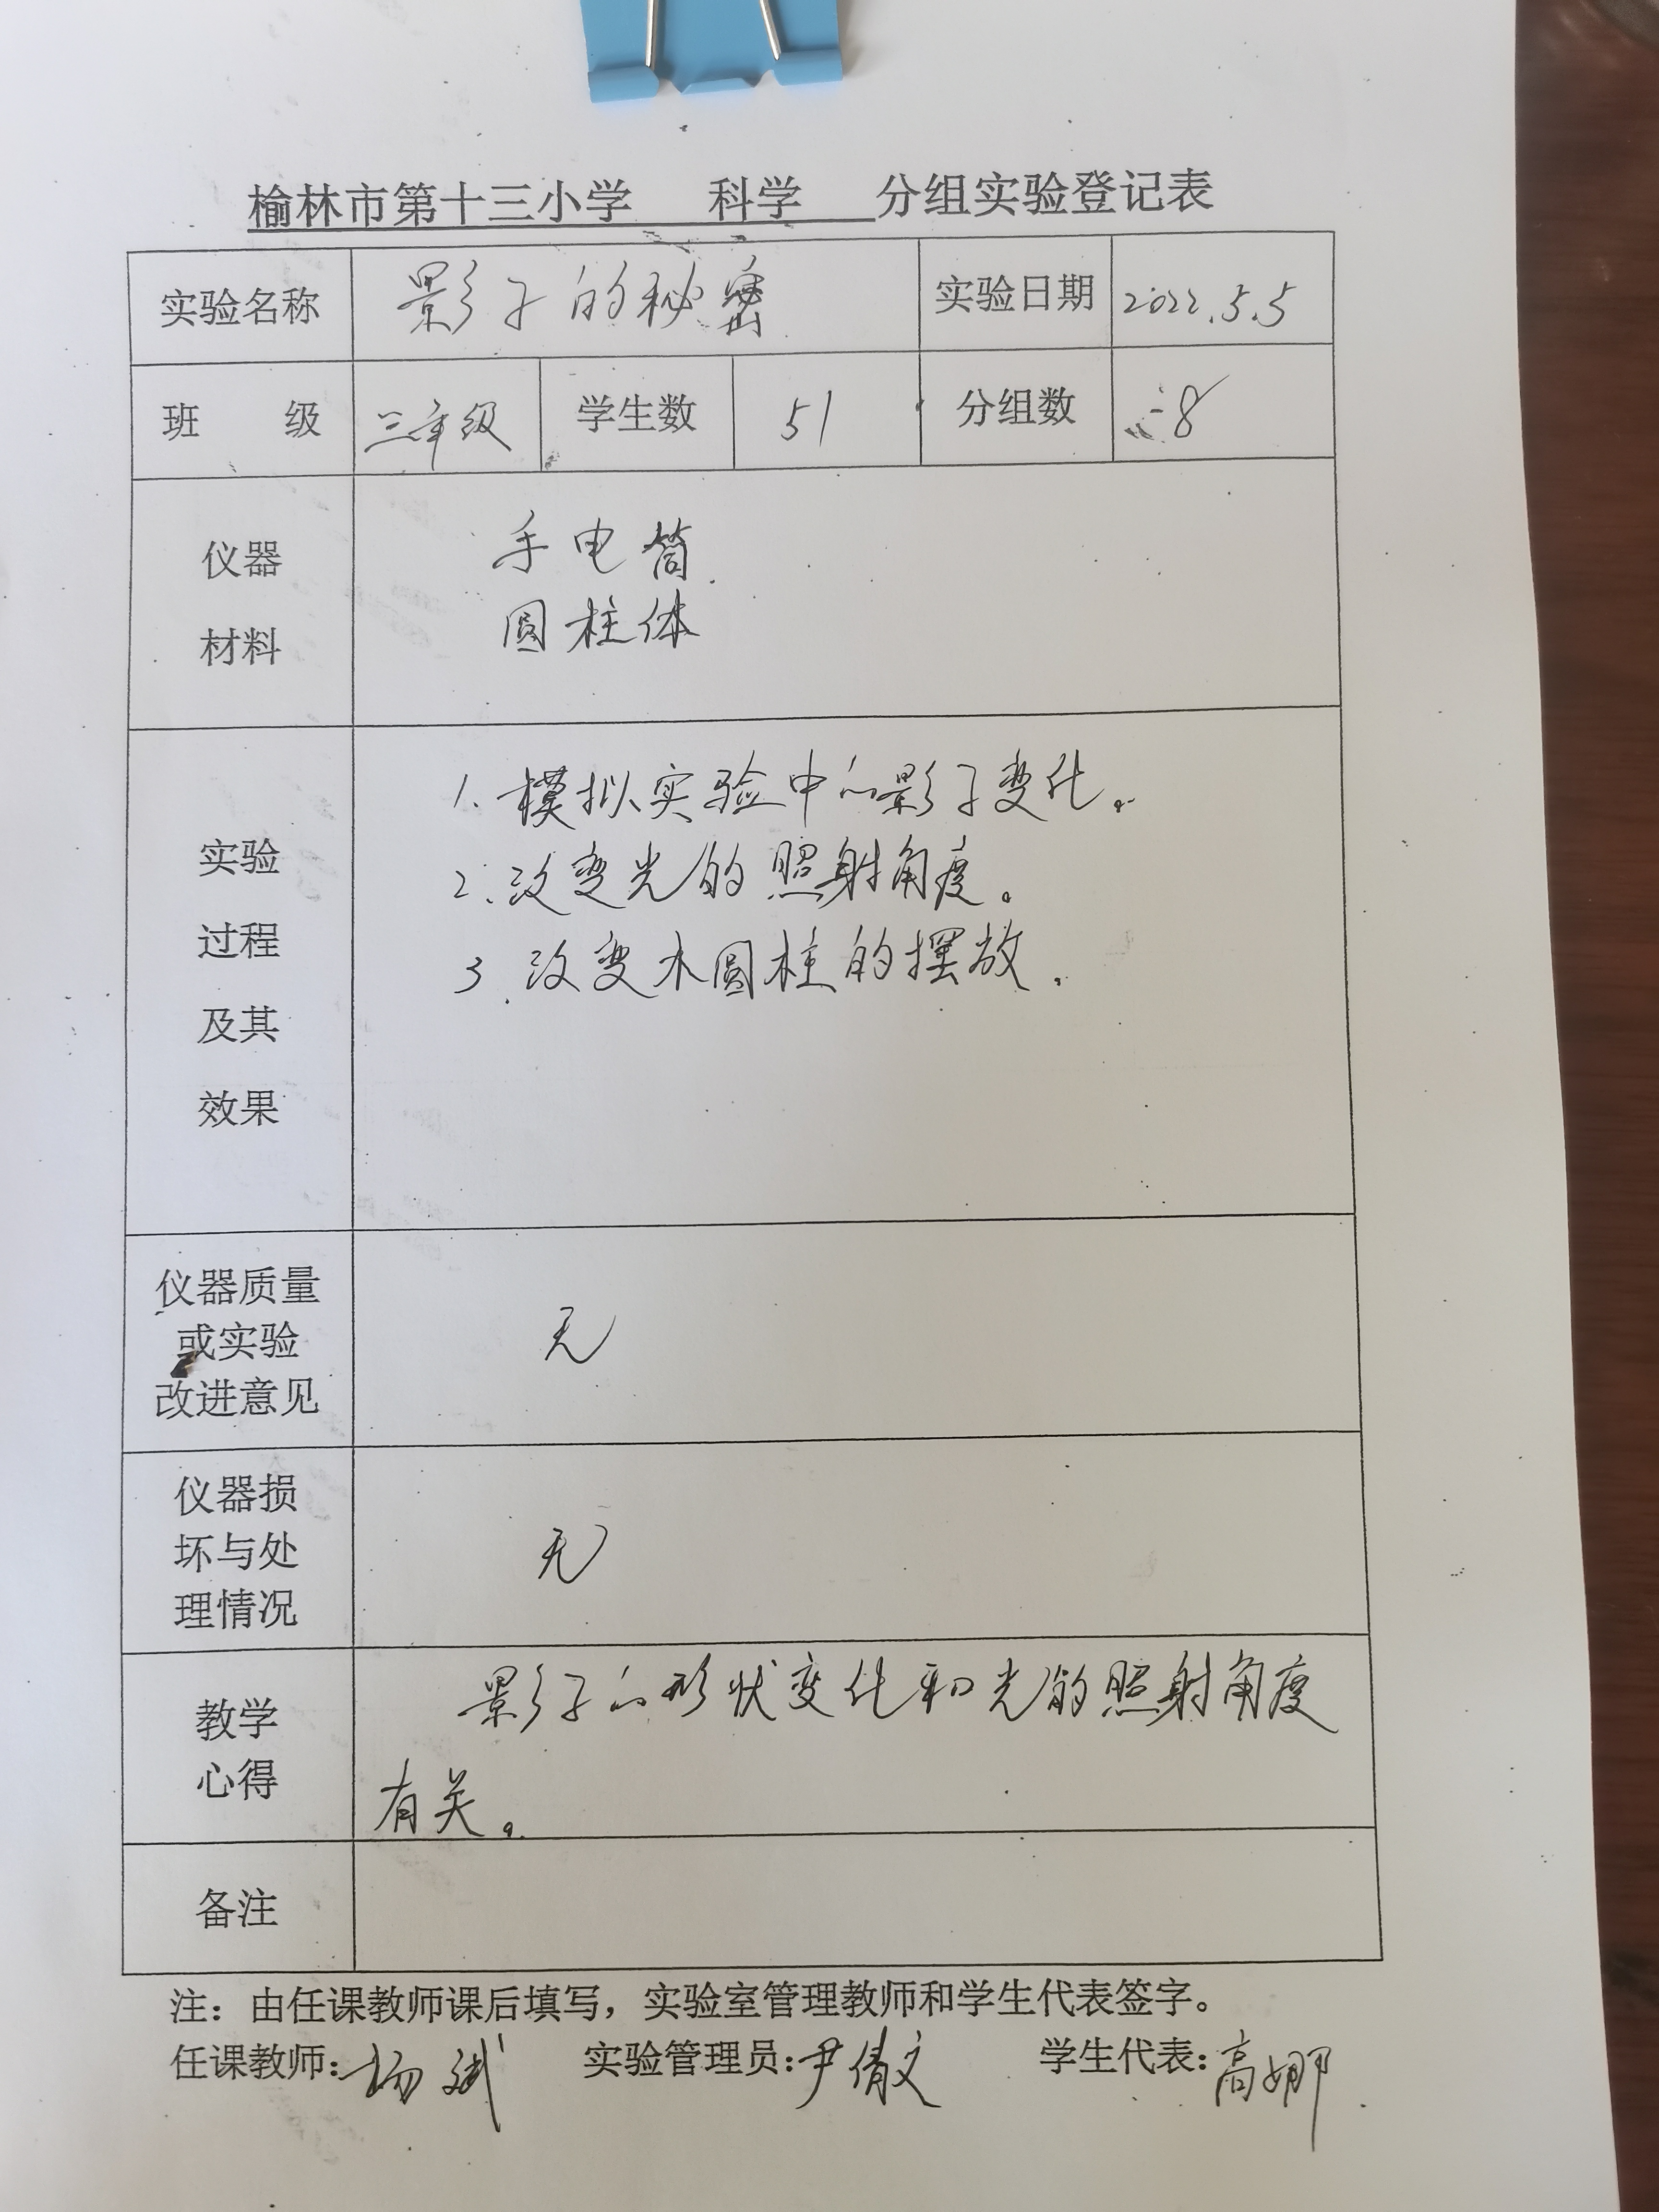 榆林市第十三小学 科学 分组实验登记表
实验名称 影子的秘密 实验日期 2022.5.5
班 级 三年级 学生数 51 分组数 8
仪器
材料
手电筒
圆柱体
实验
过程
及其
效果
1.模拟实验中的影子变化。
2.改变光的照射角度。
3.改变木圆柱的摆放.
仪器质量
或实验
改进意见
无
仪器损
坏与处
理情况
无
教学
心得
影子的形状变化和光的照射角度
有关。
备注
注：由任课教师课后填写，实验室管理教师和学生代表签字。
任课教师:杨斌 实验管理员:尹倩文 学生代表:高娜